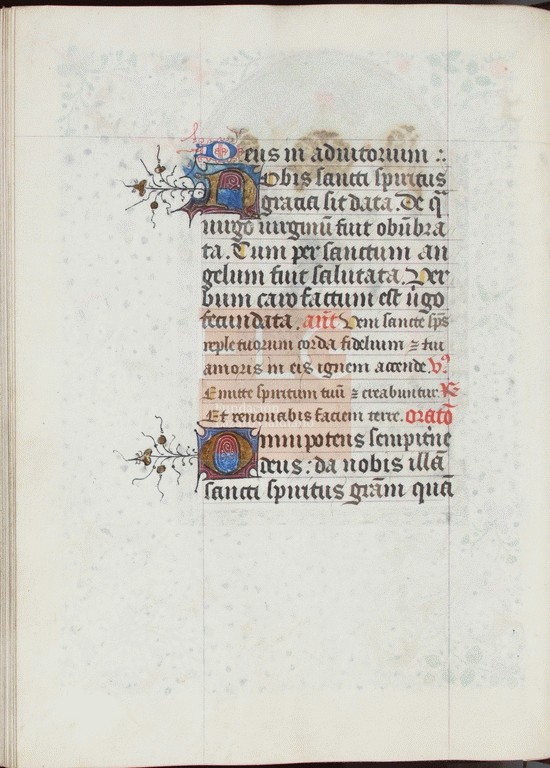 Deus in adiutorium :.
Nobis sancti spiritus
gracia sit data. De q̄
uirgo uirginū fuit obūbra
ta. Cum per sanctum an
gelum fuit salutata. Ver
bum caro factum est ūgo
fecundata. ant̄ Veni sancte sp̄s
reple tuorum corda fidelium ⁊ tui
amoris in eis ignem accende. v̄.
Emitte spiritum tuū ⁊ creabuntur. R̄
Et renouabis faciem terre. oratō
Omnipotens sempit̄ne
deus: da nobis illā
sancti spiritus grām quā